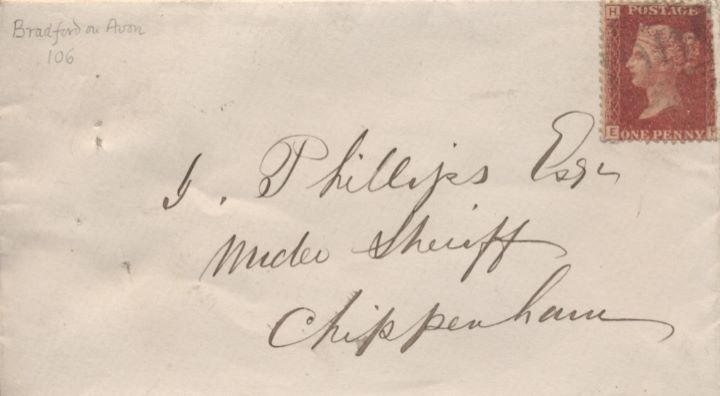 Bradford on Avon
106
H POSTAGE
E ONE PENNY H
J. Phillips Esqr
Under Sheriff
Chippenham